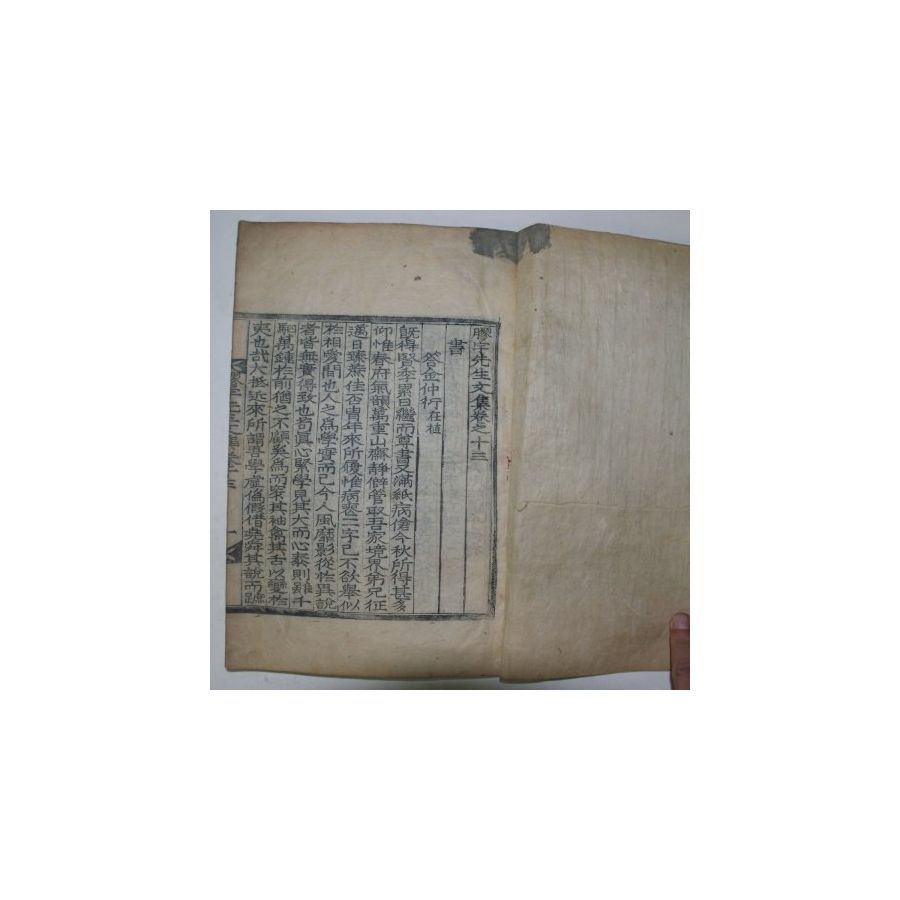 膠宇先生文集卷之十三
書
答金仲衍在植
旣得賢季累日繼而尊書又滿紙病傖今秋所得甚多
仰惟春府氣韻萬重山齋靜僻管取吾家境界弟兄征
邁日臻蔗佳否胄年來所履惟病喪二字已不欲擧似
於相愛間也人之爲學實而已今人風靡影從於異說
者皆無實得致也苟眞心緊學見其大而心泰則雖千
駟萬鍾於前猶之不顧奚爲而案其袖禽其舌以變於
夷也哉大抵近來所謂吾學虛僞假借堯舜其說而蹠